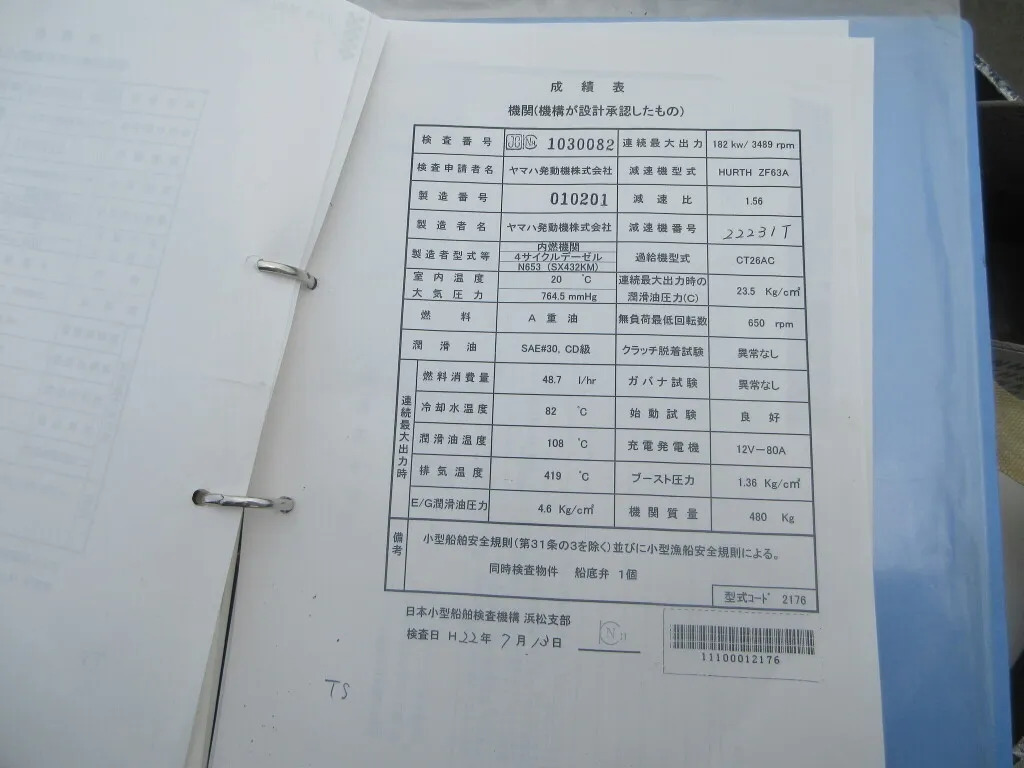 成績表
機関(機構が設計承認したもの)
検査番号 JCI 1030082 連続最大出力 182 kw/ 3489 rpm
検査申請者名 ヤマハ発動機株式会社 減速機型式 HURTH ZF63A
製造番号 010201 減速比 1.56
製造者名 ヤマハ発動機株式会社 減速機番号 22231T
製造者型式等 内燃機関 過給機型式 CT26AC
4サイクルデーゼル
N653 (SX432KM)
室内温度 20 ℃ 連続最大出力時の潤滑油圧力(C) 23.5 Kg/c㎡
大気圧力 764.5 mmHg
燃料 A 重油 無負荷最低回転数 650 rpm
潤滑油 SAE#30, CD級 クラッチ脱着試験 異常なし
連続最大出力時
燃料消費量 48.7 l/hr ガバナ試験 異常なし
冷却水温度 82 ℃ 始動試験 良好
潤滑油温度 108 ℃ 充電発電機 12V-80A
排気温度 419 ℃ ブースト圧力 1.36 Kg/c㎡
E/G潤滑油圧力 4.6 Kg/c㎡ 機関質量 480 Kg
備考
小型船舶安全規則(第31条の3を除く)並びに小型漁船安全規則による。
同時検査物件 船底弁 1個
型式コード 2176
日本小型船舶検査機構 浜松支部
検査日 H22年 7月 13日
11100012176
TS